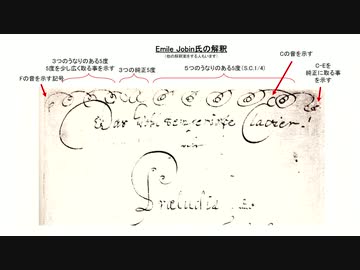 Emile Jobin氏の解釈
(他の解釈法をする人もいます)
3つのうなりのある5度
5度を少し広く取る事を示す
3つの純正5度
5つのうなりのある5度(S.C.1/4)
Cの音を示す
C-Eを
純正に取る事
を示す
Fの音を示す記号
Das Wohl temperirte Clavier.
Præludia